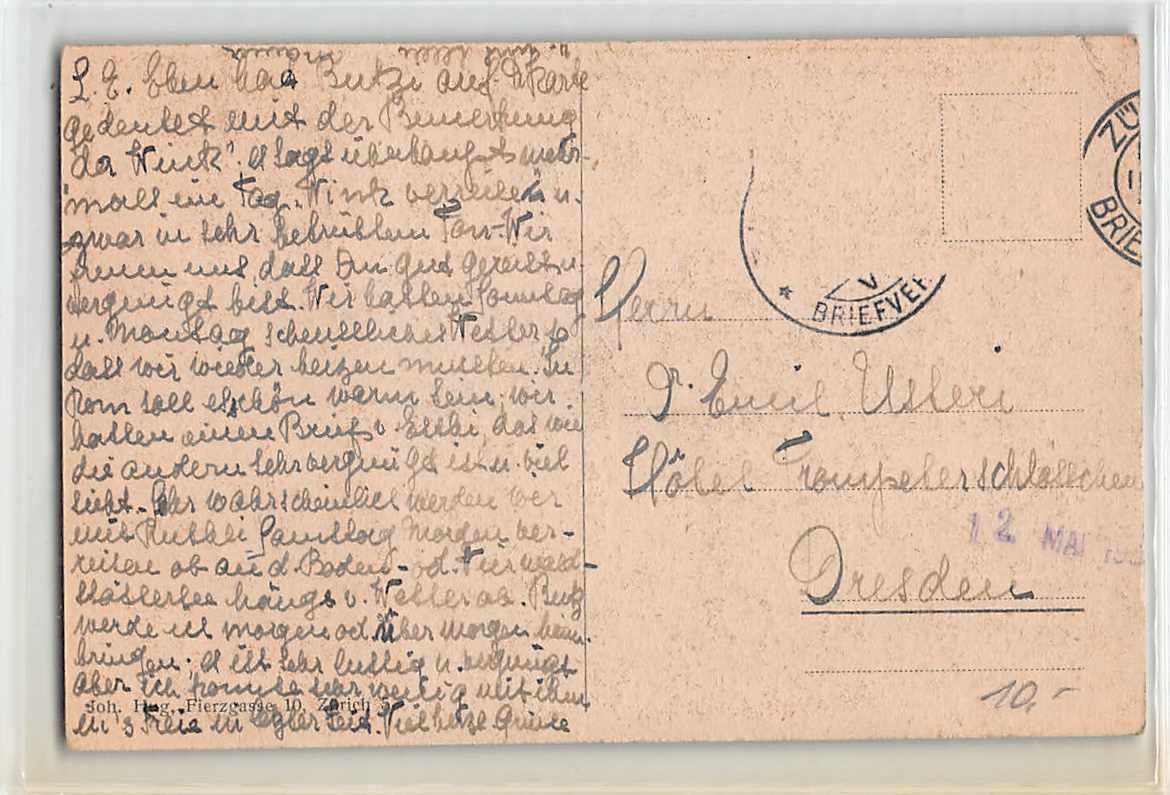 L. E. Eben hat Butzi auf d. Karte
gedeutet mit der Bemerkung
"da Wink", er sagt überhaupt mehr-
mals im Tag, Wink verreisen u.
zwar in sehr betrübtem Ton. Wir
freuen uns, dass Du gut gereist u.
vergnügt bist. Wir hatten Sonntag
u. Montag scheussliches Wetter so
dass wir wieder heizen mussten. In
Rom soll es schön warm sein, wir
hatten einen Brief v. das wie
die andern sehr vergnügt ist u. viel
sieht. Sehr wahrscheinlich werden wir
mit Ruthli Samstag Morgen ver-
reisen ob an d. Boden- od. Vierwald-
stättersee hängt v. Wetter ab. Butz
werde ich morgen od. über morgen heim
bringen; er ist sehr lustig u. vergnügt
aber ich konnte nur wenig mit ihm
in's Freie in letzter Zeit. Viel herzl. Grüsse
u. von allen Mama
Joh. Hug, Fierzgasse 10, Zürich 5
Herrn
Dr. Emil Usteri
Hôtel Trompeterschlösschen
Dresden
12 MAI
10.-
ZÜ
BRIE
V
* BRIEFVER